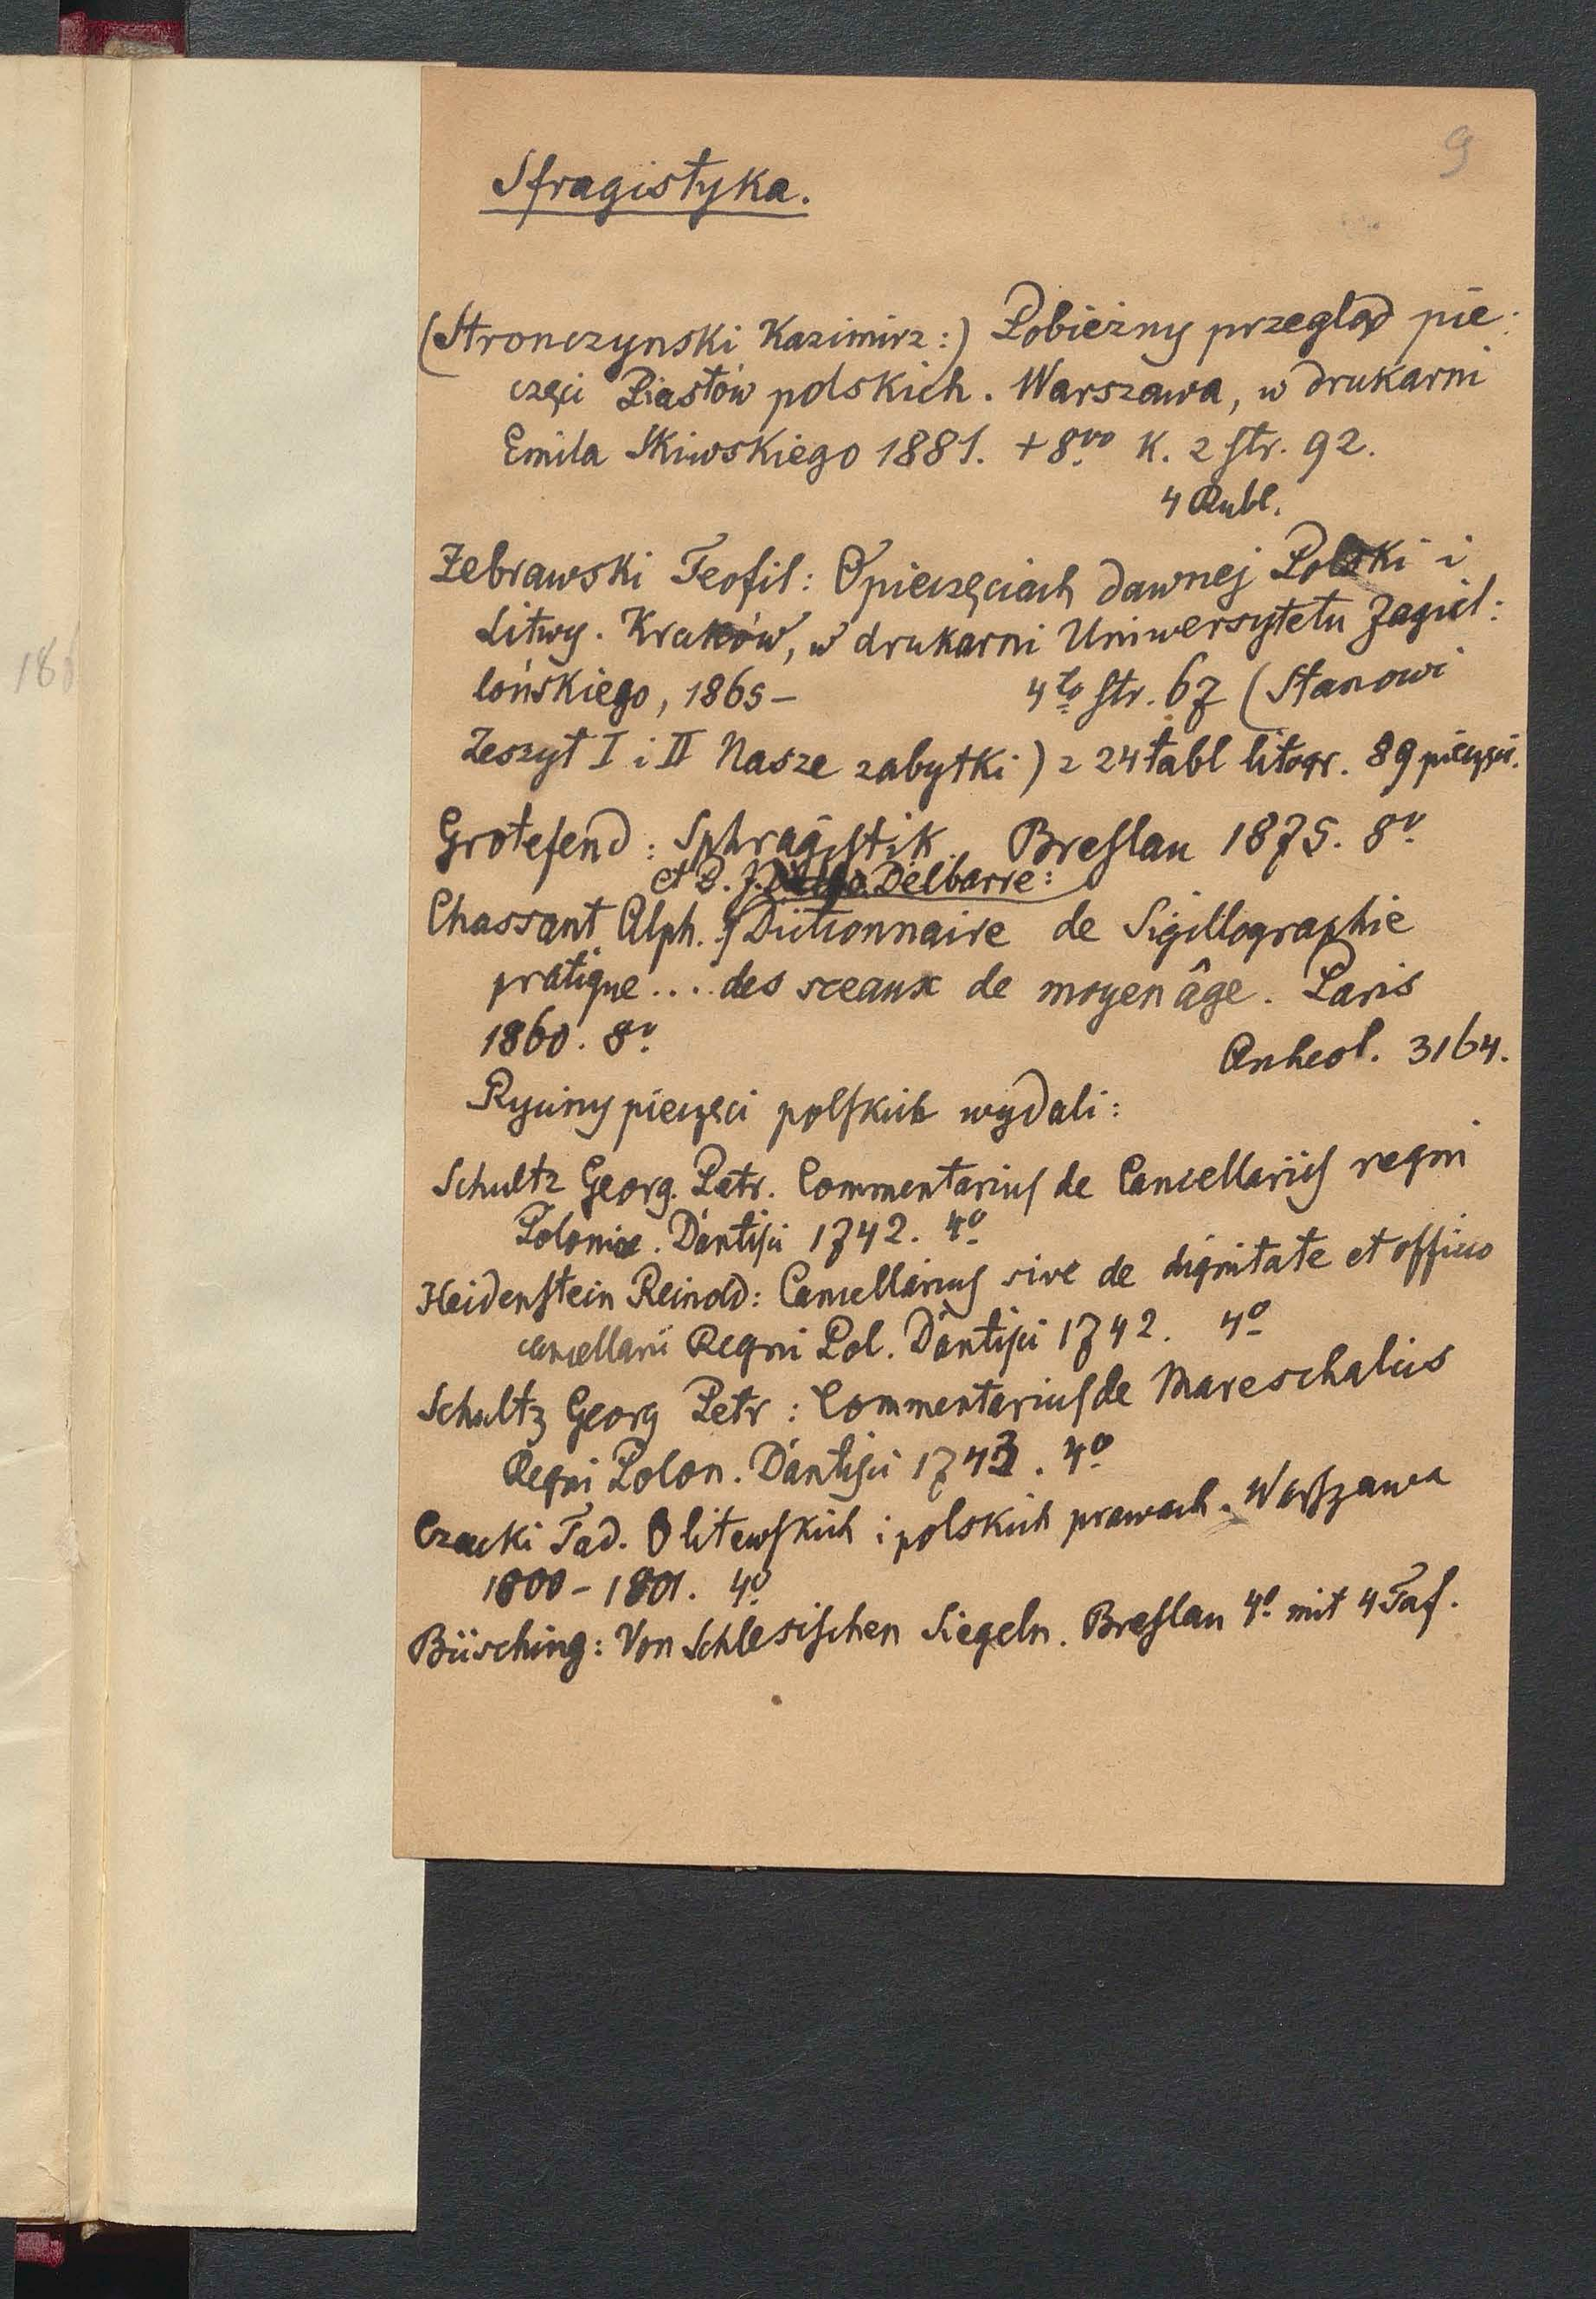 9
Sfragistyka.
(Stronczynski Kazimirz:) Pobieżny przegląd pie:
częci Piastów polskich. Warszawa, w drukarni
Emila Skiwskiego 1881. + 8vo K. 2 str. 92.
4 Rubl.
Żebrawski Teofil: O pieczęciach dawnej Polski i
Litwy. Kraków, w drukarni Uniwersytetu Jagiel:
lońskiego, 1865 – 4to str. 67 (Stanowi
Zeszyt I i II Nasze zabytki) z 24 tabl litogr. 89 pieczęci.
Grotefend: Sphragistik. Breslau 1875. 8o
et P. J. Delbarre:
Chassant Alph. Dictionnaire de Sigillographie
pratique .... des sceaux de moyen âge. Paris
1860. 8o
Archeol. 3164.
Ryciny pieczęci polskich wydali:
Schultz Georg. Petr. Commentarius de Cancellariis regni
Poloniae. Dantisci 1742. 4o
Heidenstein Reinold: Cancellarius sive de dignitate et officio
cancellarii Regni Pol. Dantisci 1742. 4o
Schultz Georg Petr: Commentarius de Mareschalcis
Regni Polon. Dantisci 1743. 4o
Czacki Tad. O litewskich i polskich prawach. Warszawa
1800 – 1801. 4o
Büsching: Von Schlesischen Siegeln. Breslau 4o mit 4 Taf.